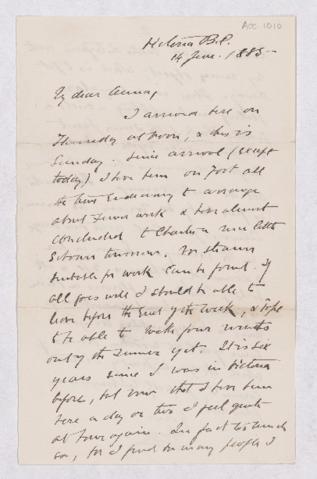 Acc 1010
Victoria B.C.
14 June. 1885
My dear
I arrived here on
Thursday at noon, & this is
Sunday. Since arrival (except
today) I have been on foot all
the time endeavoring to arrange
about Summer work & have almost
concluded to Charter
Schooner tomorrow. No steamer
suitable for work can be found. If
all goes well I should be able to
leave before the end of the week, & hope
to be able to make four months
out of the Summer yet. It is six
years since I was in Victoria
before, but now that I have been
here a day or two I feel quite
at home again. In fact too much
so, for I find so many people I